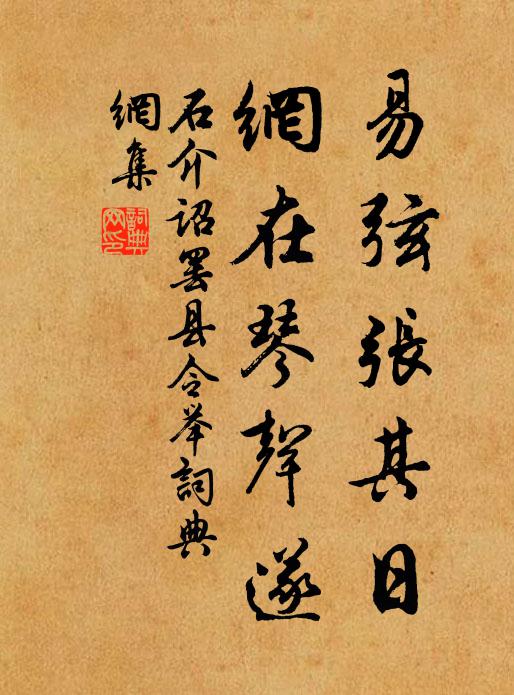 易弦張其日
網在琴聲遂
石介詔罢县令举詞典
網集
詞典
网印